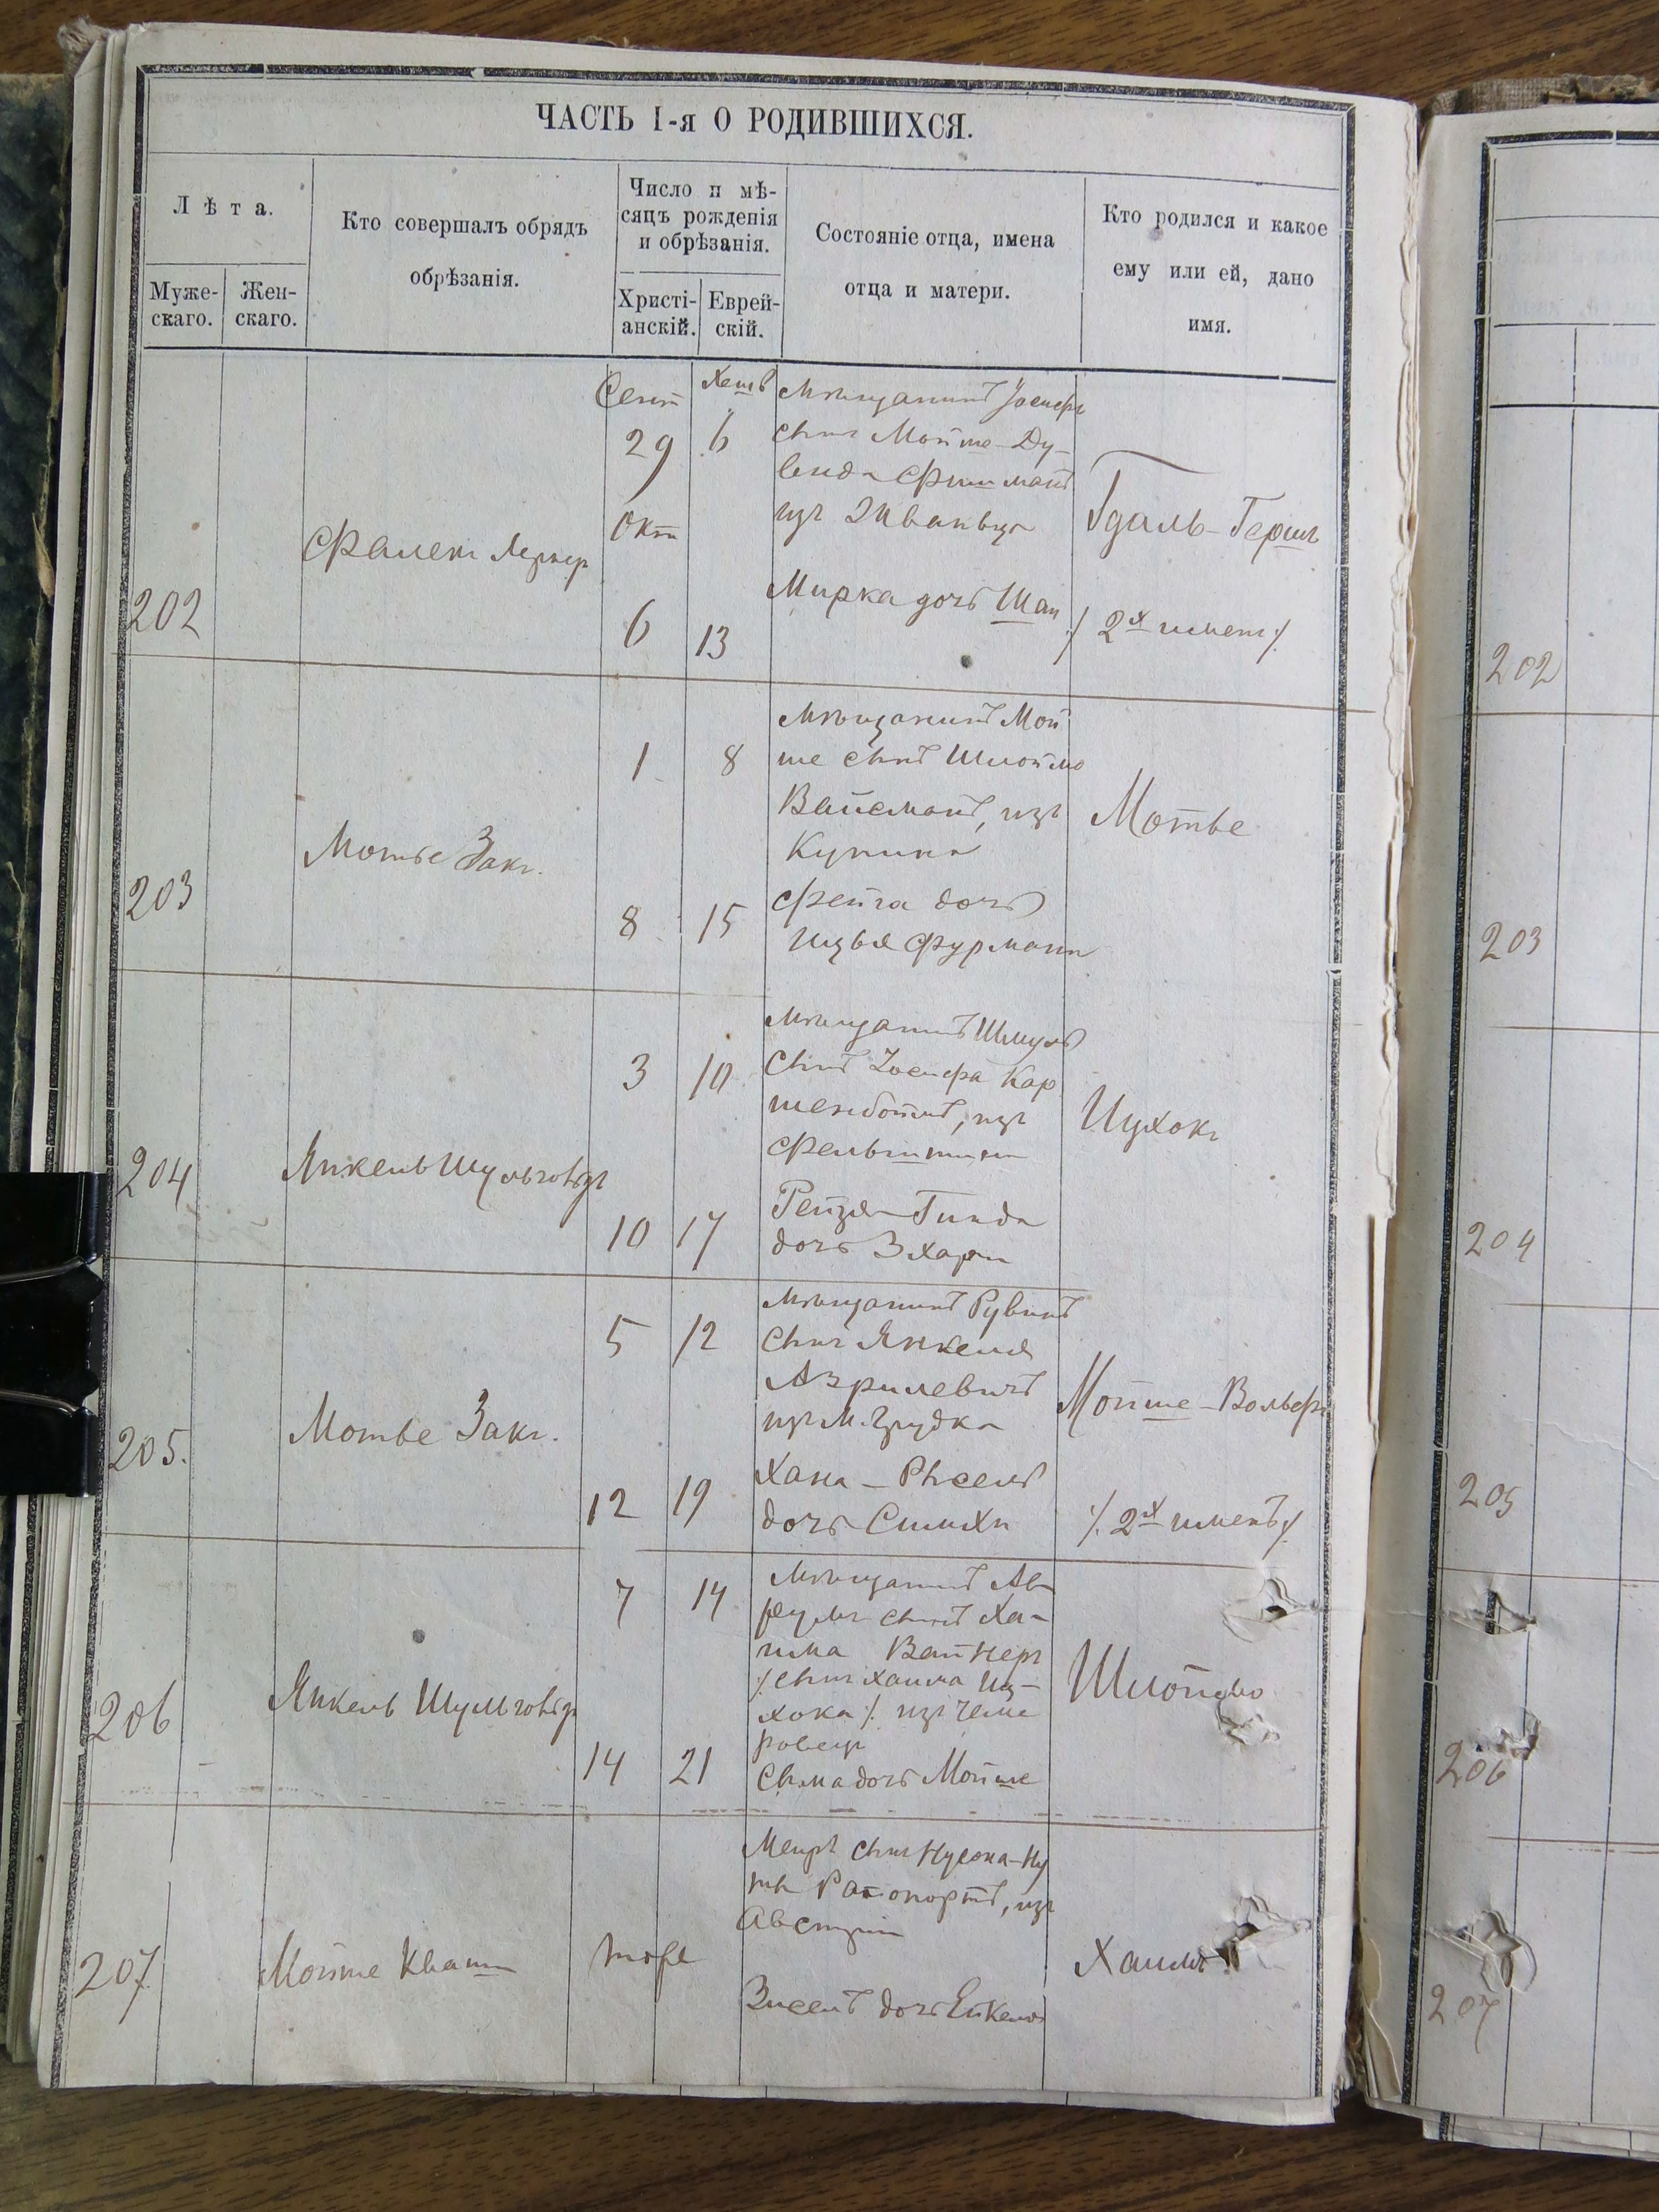 ЧАСТЬ I-я О РОДИВШИХСЯ.
Лѣта.
Муже-
скаго.
Жен-
скаго.
Кто совершалъ обрядъ
обрѣзанія.
Число и мѣ-
сяцъ рожденія
и обрѣзанія.
Христі-
анскій.
Еврей-
скій.
Состояніе отца, имена
отца и матери.
Кто родился и какое
ему или ей, дано
имя.
202
Фалекъ
Сент
29
Окт
6
Хешв
6
13
Мѣщанинъ Іосифъ
сынъ Мойше-Ду-
вида Фишманъ
изъ Жванца
Мирка дочь Шаи
Гдаль-Гершъ
/ 2х именъ /.
202
203
Мотье Закъ.
1
8
8
15
Мѣщанинъ Мой
ше сынъ Шлоймо
Вайсманъ, изъ
Купина
Фейга дочь
Ицья Фурмана
Мотье
203
204
Янкель Шульговзъ
3
10
10
17
Мѣщанинъ Шмуль
сынъ Іосифа Кар
шенбоймъ, изъ
Фельштина
Рейзя-Гинда
дочь Зхари
Ицхокъ
204
205.
Мотье Закъ.
5
12
12
19
Мѣщанинъ Рувинъ
сынъ Янкеля
Азрилевичъ
изъ М. Грудка
Хана-Рысель
дочь Симхи
Мойше-Вольфъ
/. 2х именъ /.
205
206
Янкель Шульговзъ
7
14
14
21
Мѣщанинъ Ав-
румъ сынъ Ха-
има Вайнеръ
/. сынъ Хаима Иц-
хока /. изъ Чеме
ровецъ
Сыма дочь Мойше
Шлоймо
206
207
Мойше Кваша
тоже
Меиръ сынъ Нусона-Ну
ты Рапопортъ, изъ
Австріи
Зисель дочь Ейкеля
Хаимъ
207